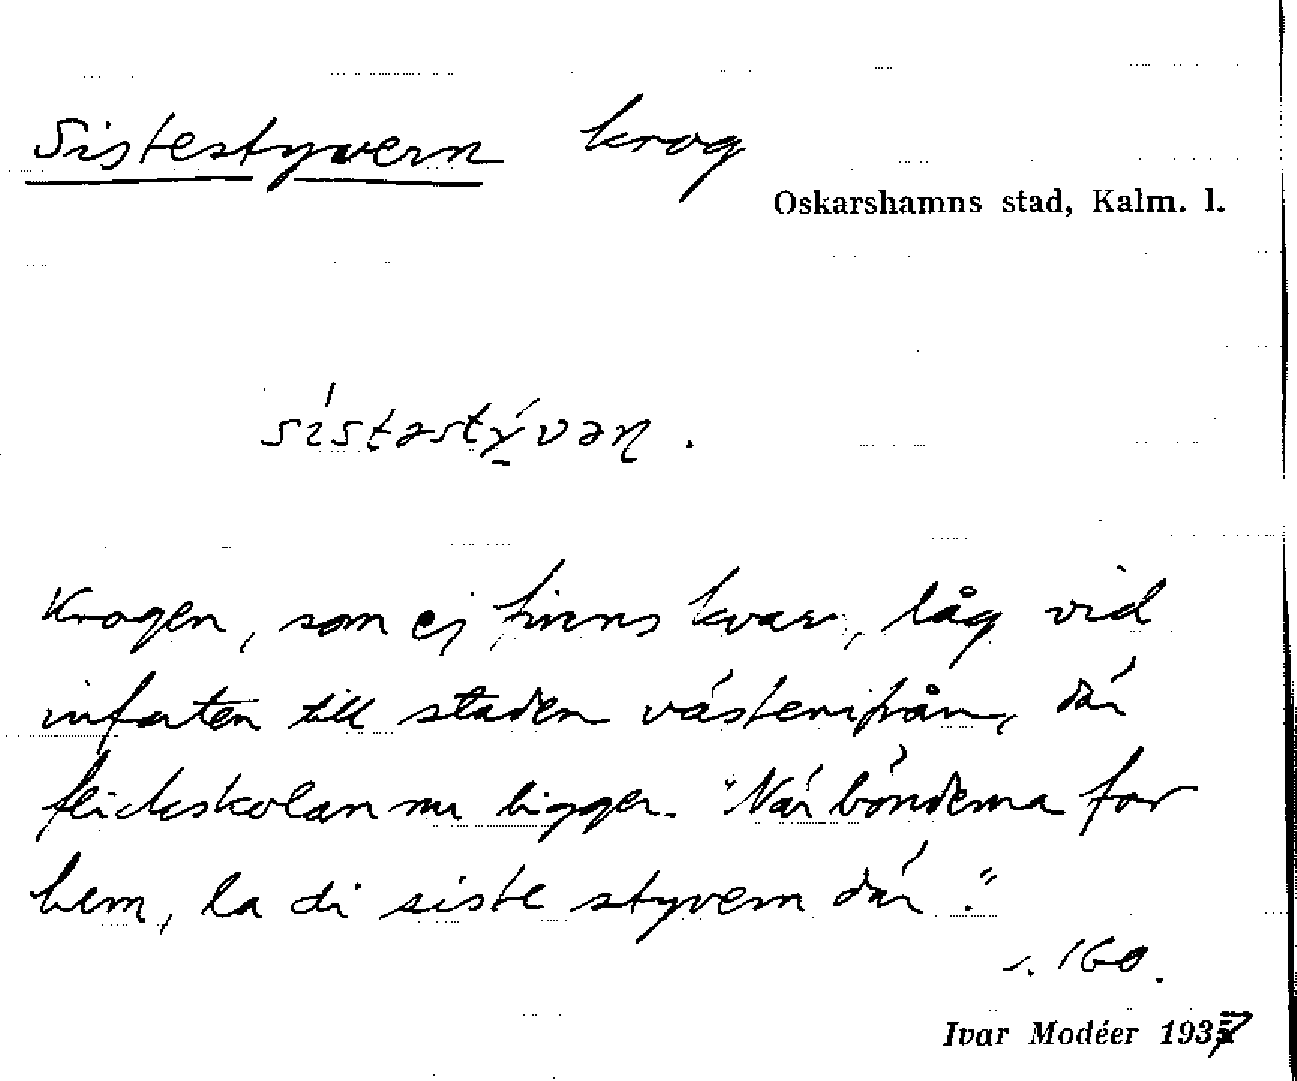 Sistestyvern krog
Oskarshamns stad, Kalm. l.
sístəstývəɳ.
Krogen, som ej finns kvar, låg vid
infarten till staden västerifrån, där
flickskolan nu ligger. "När bönderna for
hem, la di siste styvern där."
s. 160.
Ivar Modéer 1937